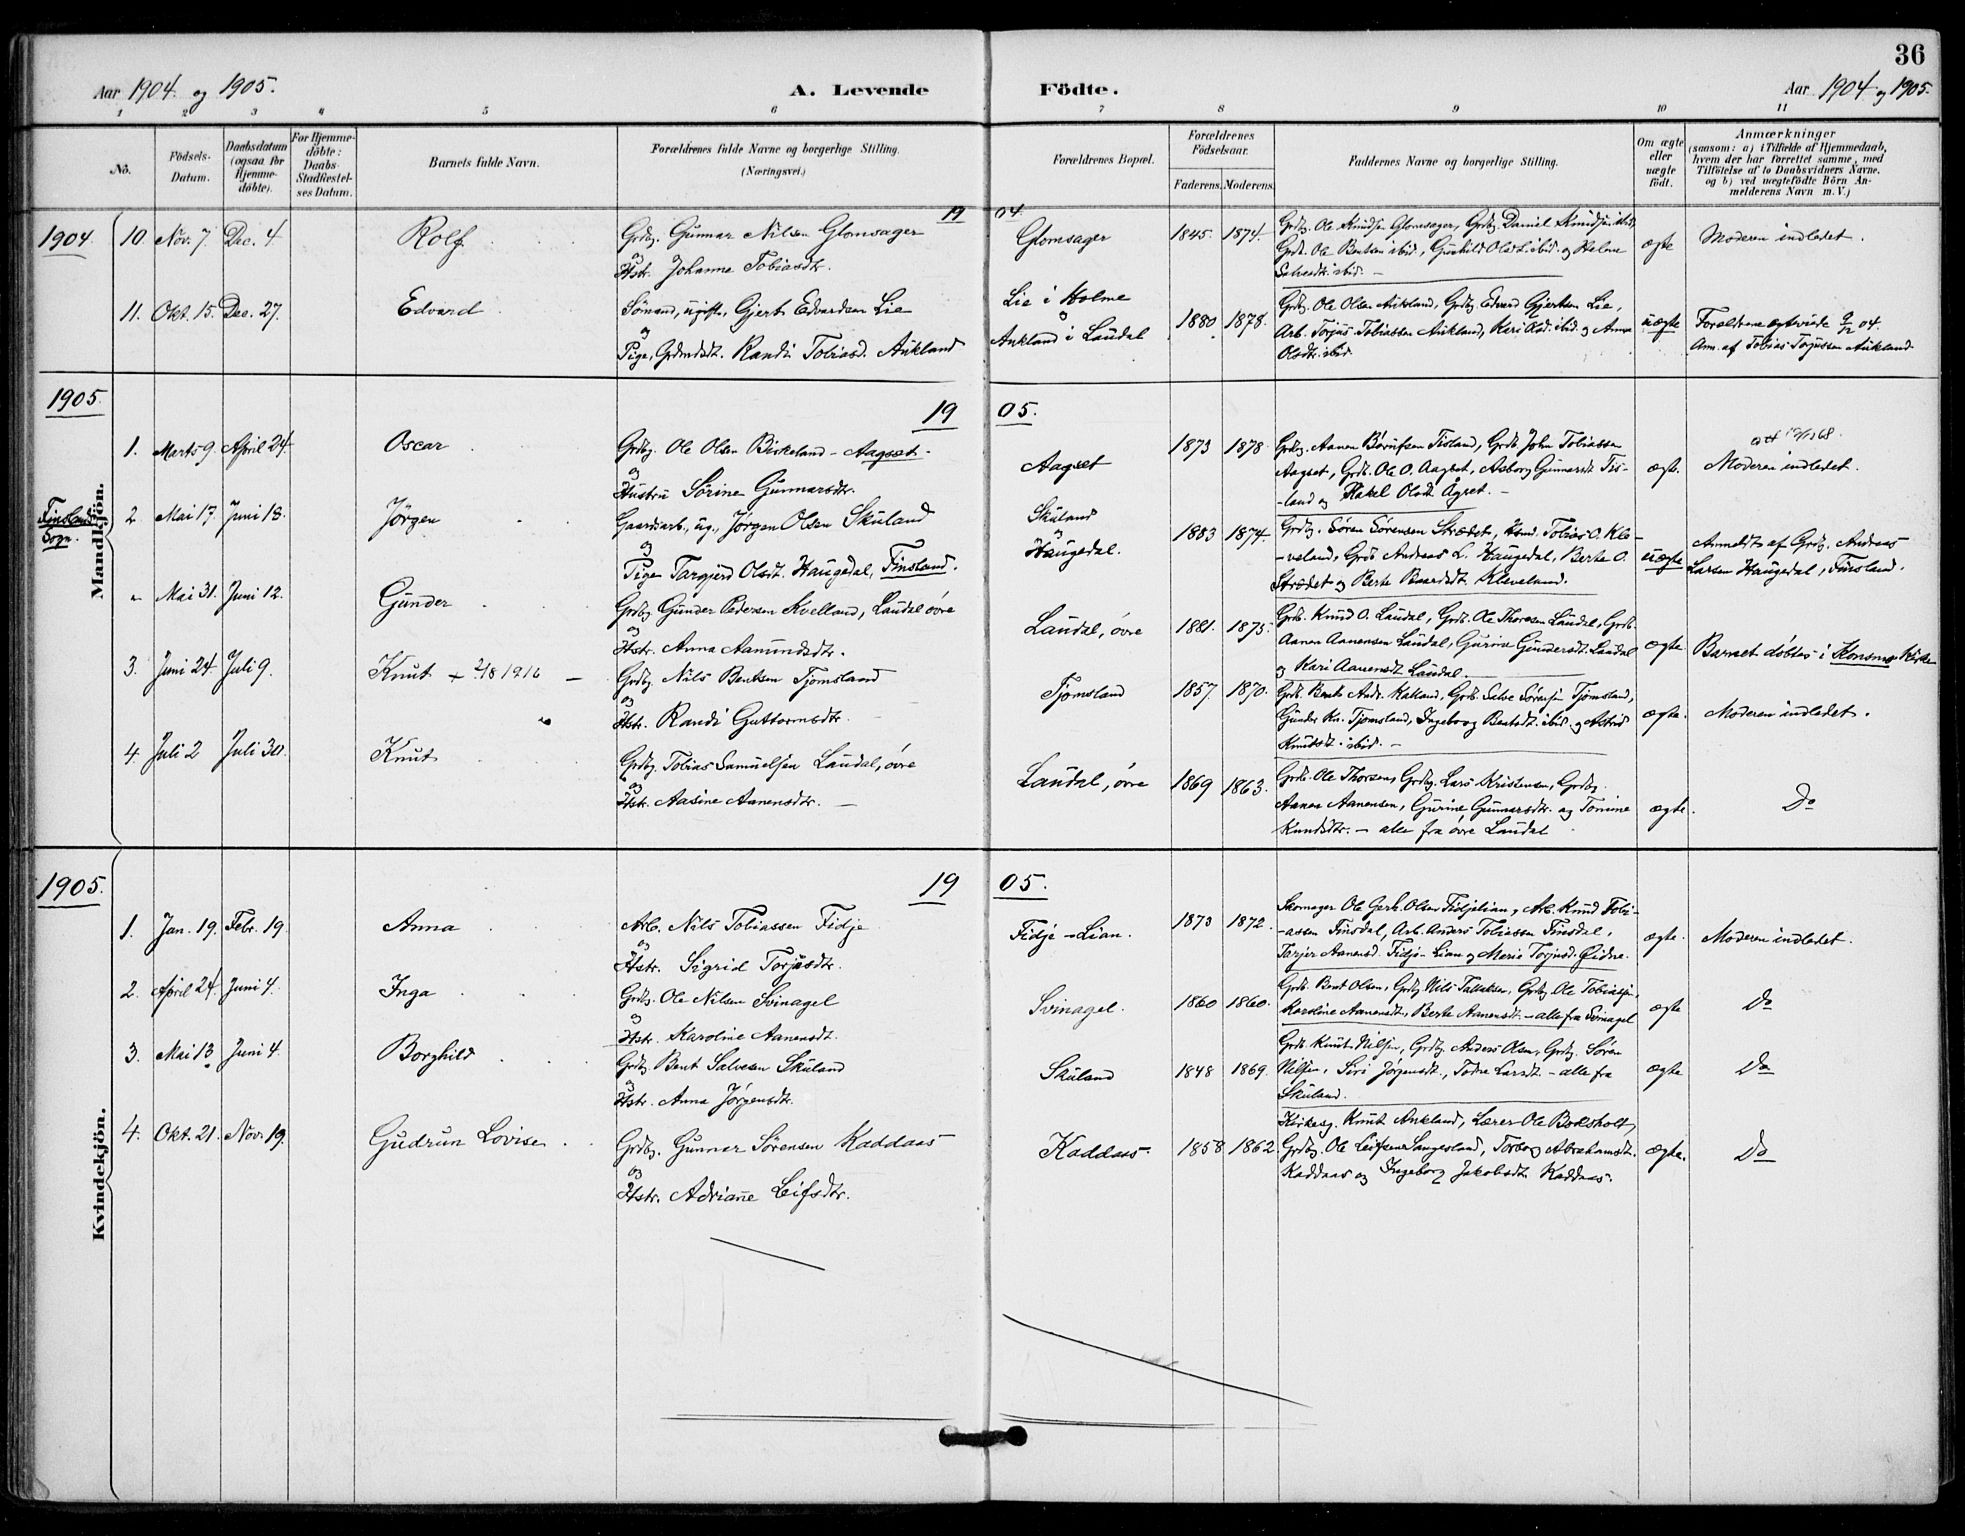 36
Aar 1904 og 1905.
A. Levende
Födte.
Aar 1904 og 1905.
1 2 3 4 5 6 7 8 9 10 11
No.
Födsels-Datum.
Daabsdatum (ogsaa for Hjemme-döbte).
For Hjemme-döbte: Daabs-Stadfæstel-ses Datum.
Barnets fulde Navn.
Forældrenes fulde Navne og borgerlige Stilling.
(Næringsvei.)
Forældrenes Bopæl.
Forældrenes Födselsaar.
Faderens. Moderens.
Faddernes Navne og borgerlige Stilling.
Om ægte eller uægte födt.
Anmærkninger
(saasom: a) i Tilfælde af Hjemmedaab,
hvem der har forrettet samme, med
Tilföielse af to Daabsvidners Navne,
og b) ved uægtefödte Börn An-
melderens Navn m. V.)
Mandkjön.
1904
19 04.
10. Nov. 7 Dec. 4 Rolf
Grdbg. Gunnar Nilsen Glomsager
og
Hstr. Johanne Tobiasdtr.
Glomsager 1845. 1874.
Grdbg. Ole Knudsen Glomsager, Grdbg. Daniel Knudsen ibid,
Grdb. Ole Bentsen ibid., Gunhild Olsdt. ibid. og Helene
Salvesdt. ibid. —
ægte Moderen indledet.
11. Okt. 15. Dec. 27. Edvard
Sömand, ugift, Gjert Edvardsen Lie
og
Pige, Grdmdsdt. Randi Tobiasd. Aukland
Lie i Holme
og
Aukland i Laudal 1880 1878.
Grdbg. Ole Olsen Aukland, Grdbg. Edvard Gjertsen Lie,
Arb. Torjus Tobiassen Aukland, Kari Olsd. ibid. og Anne
Olsdtr. ibid.
uægte Forældrene ægteviede 9/12 04.
Anm. af Tobias Torjussen Aukland
1905.
19 05.
1. Marts 9. April 24. Oscar
Grdbg. Ole Olsen Birkeland - Aagset.
og
Hustru Sörine Gunnarsdtr.
Aagset 1873 1878.
Grdbg. Aanen Börufsen Tisland, Grdb. John Tobiassen
Aagset, Grdb. Ole O. Aagset, Asborg Gunnarsdt. Tis-
-land og Rakel Olsdt. Ågset. —
ægte. Moderen indledet.
Finsland Sogn.
2. Mai 17. Juni 18. Jörgen
Gaardarb., ug., Jörgen Olsen Skuland
og
Pigen Targjerd Olsdt. Haugedal, Finsland.
Skuland
og
Haugedal. 1883 1874.
Grdbg. Sören Sörensen Strædet, Hsmd. Tobias O. Kle-
-veland, Grdb. Andreas L. Haugedal, Berte O.
Strædet og Berte Baardsdt. Kleveland.
uægte Anmeldt af Grdbg. Andreas
Larsen Haugedal, Finsland.
" Mai 31. Juni 12. Gunder
Grdbg. Gunder Pedersen Kvelland, Laudal övre
og
Hstr. Anna Aamundsdtr.
Laudal, övre 1881. 1875.
Grdb. Knud O. Laudal, Grdb. Ole Thorsen Laudal, Grdb.
Aanen Aanensen Laudal, Gurine Gundersdt. Laudal
og Kari Aanensdt. Laudal.
ægte. Barnet döbtes i Konsmo Kirke
3. Juni 24. Juli 9. Knut + 2/8 1916 —
Grdbg. Nils Bentsen Tjomsland
og
Hstr. Randi Guttormsdtr.
Tjomsland 1857. 1870.
Grdb. Bent Andr. Hatland, Grdb. Salve Sörensen Tjomsland,
Gunder Kn. Tjomsland, Ingeborg Bentsdt. ibid. og Astrid
Knutsdt. ibid. —
ægte. Moderen indledet.
4. Juli 2 Juli 30. Knut
Grdbg. Tobias Samuelsen Laudal, övre
og
Hstr. Aasine Aanensdtr. —
Laudal, övre 1869 1863.
Grdb. Ole Thorsen, Grdbg. Lars Kristensen, Grdbg.
Aanen Aanensen, Gurine Gunnarsdtr. og Tomine
Knudsdtr. — alle fra övre Laudal
ægte. Do
Kvindekjön.
1905.
19 05.
1. Jan. 19. Febr. 19. Anna
Arb. Nils Tobiassen Fidje
og
Hstr. Sigrid Torjusdtr.
Fidje - Lian. 1873 1872.
Skomager Ole Gerh. Olsen Fidjelian, Arb. Knud Tobi-
-assen Finsdal, Arb. Anders Tobiassen Finsdal,
Tarjer Aanensd. Fidje-Lian og Marie Torjusd. Øidne.
ægte. Moderen indledet.
2. April 24. Juni 4. Inga
Grdbg. Ole Nilsen Svinagel
og
Hstr. Karoline Aanensdt.
Svinagel. 1860 1860.
Grdb. Bent Olsen, Grdbg. Nils Tallaksen, Grdbg. Ole Tobiassen,
Karoline Aanensdt., Berte Aanensdt. — alle fra Svinagel
ægte Do
3. Mai 13 Juni 4. Borghild
Grdbg. Bent Salvesen Skuland
og
Hstr. Anna Jörgensdtr.
Skuland 1848 1869.
Grdb. Knut Nilsen, Grdbg. Anders Olsen, Grdbg. Sören
Nilsen, Siri Jörgensdt., Todne Larsdt. — alle fra
Skuland.
ægte Do
4. Okt. 21. Nov. 19. Gudrun Lovise
Grdbg. Gunnar Sörensen Kaddaas
og
Hstr. Adriane Leifsdtr.
Kaddaas. 1858 1862
Kirkesg. Knut Aukland, Lærer Ole Boksholt,
Grdbg. Ole Leifsen Sangesland, Torborg Abrahamsdt.
Kaddaas og Ingeborg Jakobsdt. Kaddaas.
ægte. Do